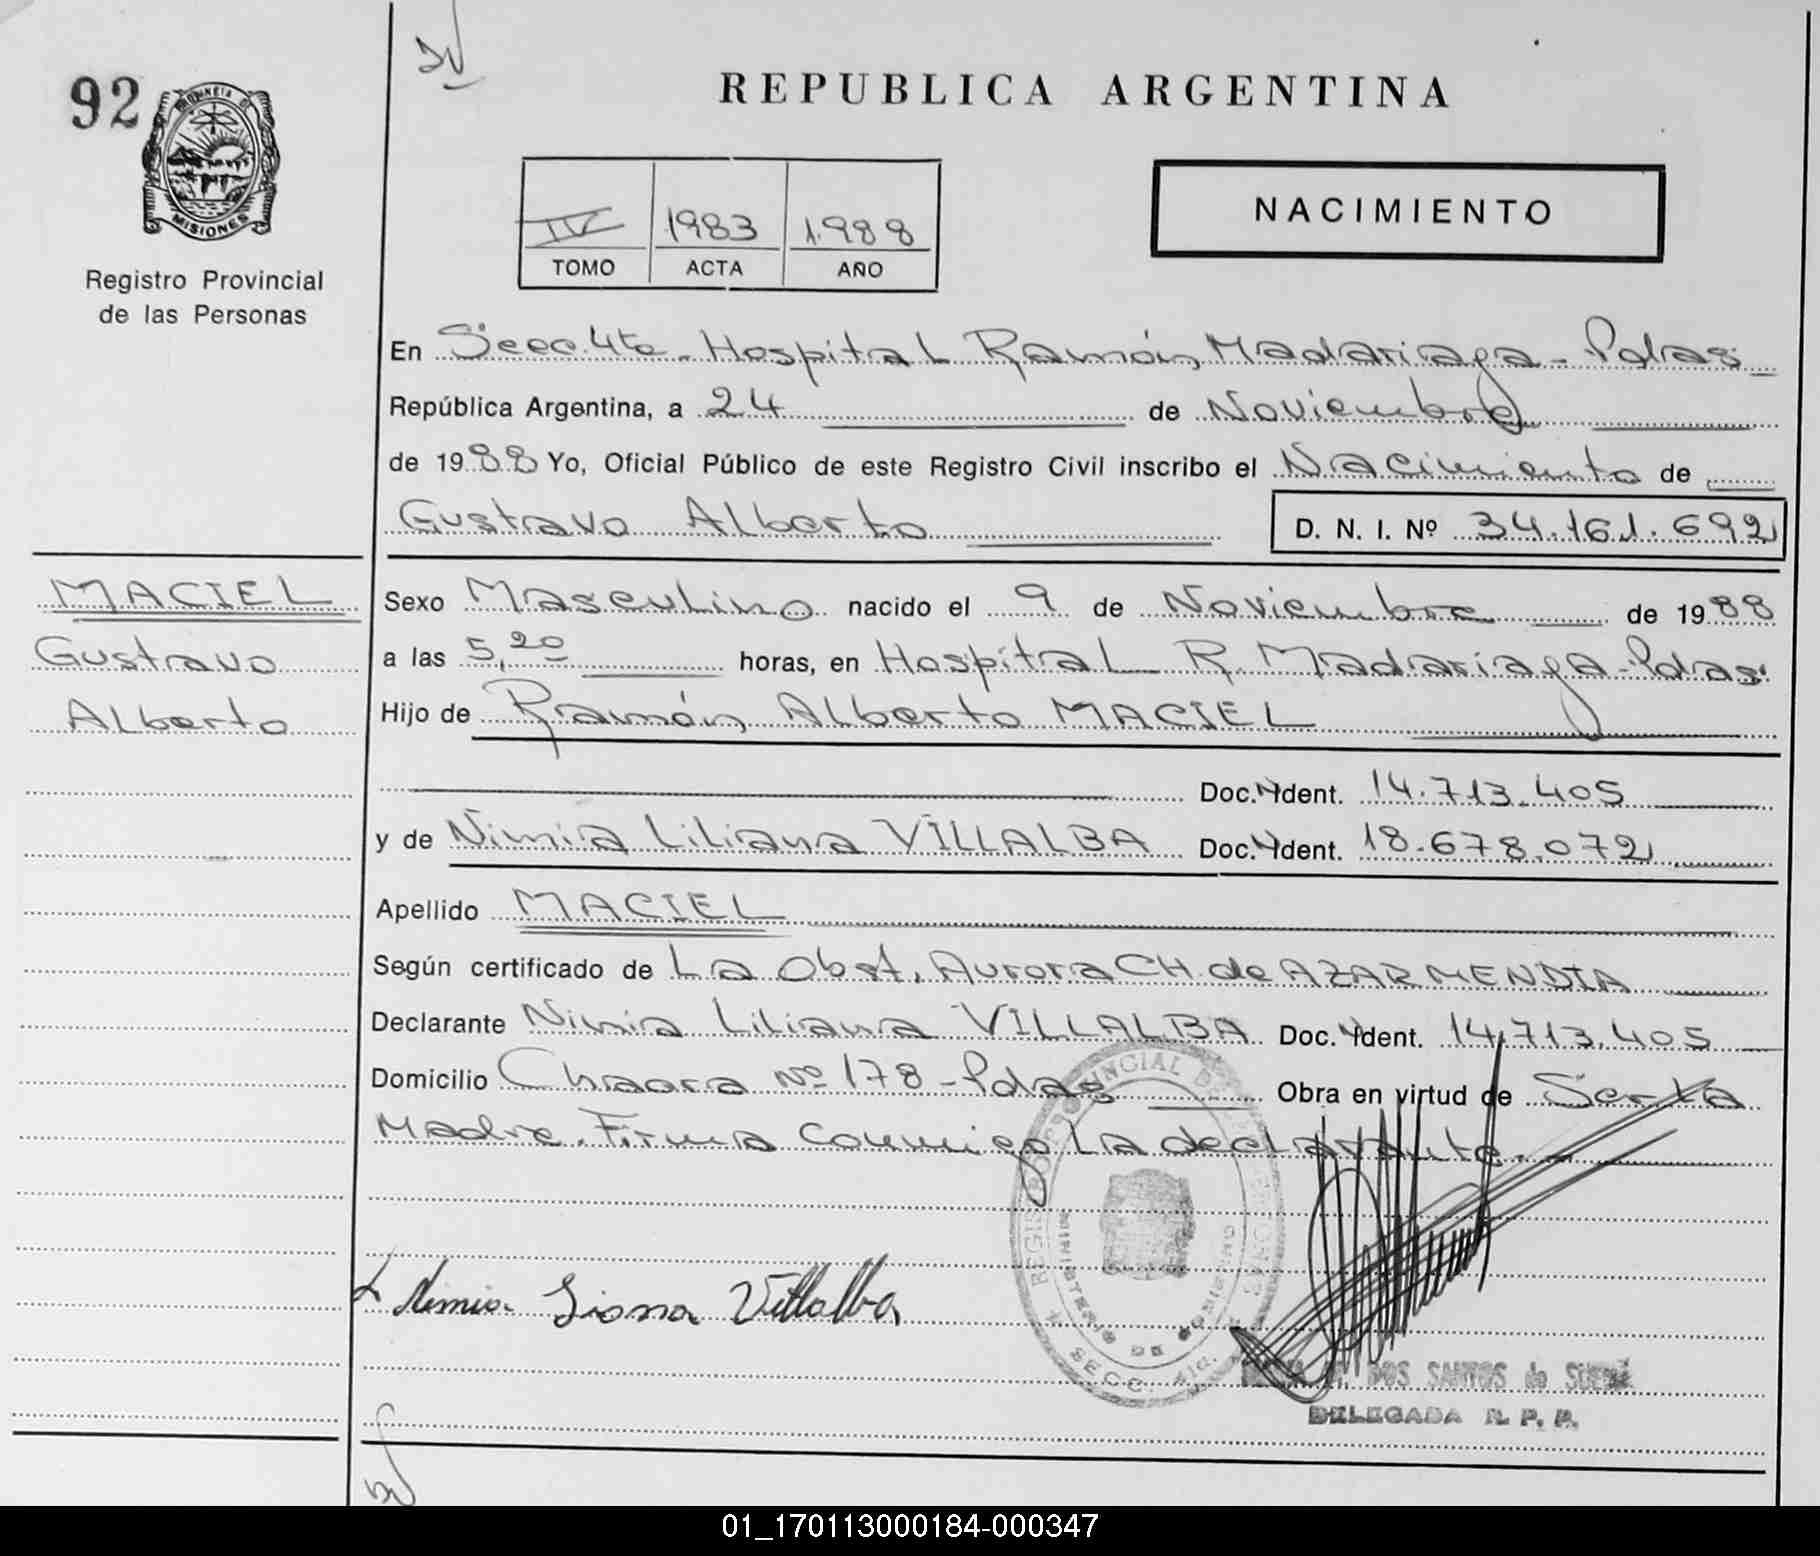 92
PROVINCIA D
MISIONES
Registro Provincial
de las Personas
REPUBLICA ARGENTINA
IV 1983 1.988
TOMO ACTA AÑO
NACIMIENTO
En Secc. 4ta. Hospital Ramón Madariaga - Pdas
República Argentina, a 24 de Noviembre
de 1988 Yo, Oficial Público de este Registro Civil inscribo el Nacimiento de
Gustavo Alberto D. N. I. Nº 34.161.692
MACIEL
Gustavo
Alberto
Sexo Masculino nacido el 9 de Noviembre de 1988
a las 5,20 horas, en Hospital R. Madariaga - Pdas.
Hijo de Ramón Alberto MACIEL
Doc. Ident. 14.713.405
y de Nimia Liliana VILLALBA Doc. Ident. 18.678.072
Apellido MACIEL
Según certificado de La Obst. Aurora CH. de AZARMENDIA
Declarante Nimia Liliana VILLALBA Doc. Ident. 14.713.405
Domicilio Chacra Nº 178 - Pdas Obra en virtud de Ser la
Madre. Firma conmigo la declarante. -
Nimia Liona Villalba
REGIS PROVINCIAL DE PERSONAS
MINISTERIO DE GOBIERNO
SECC. 4ta.
DOS SANTOS de
DELEGADA R. P. P.
01_170113000184-000347